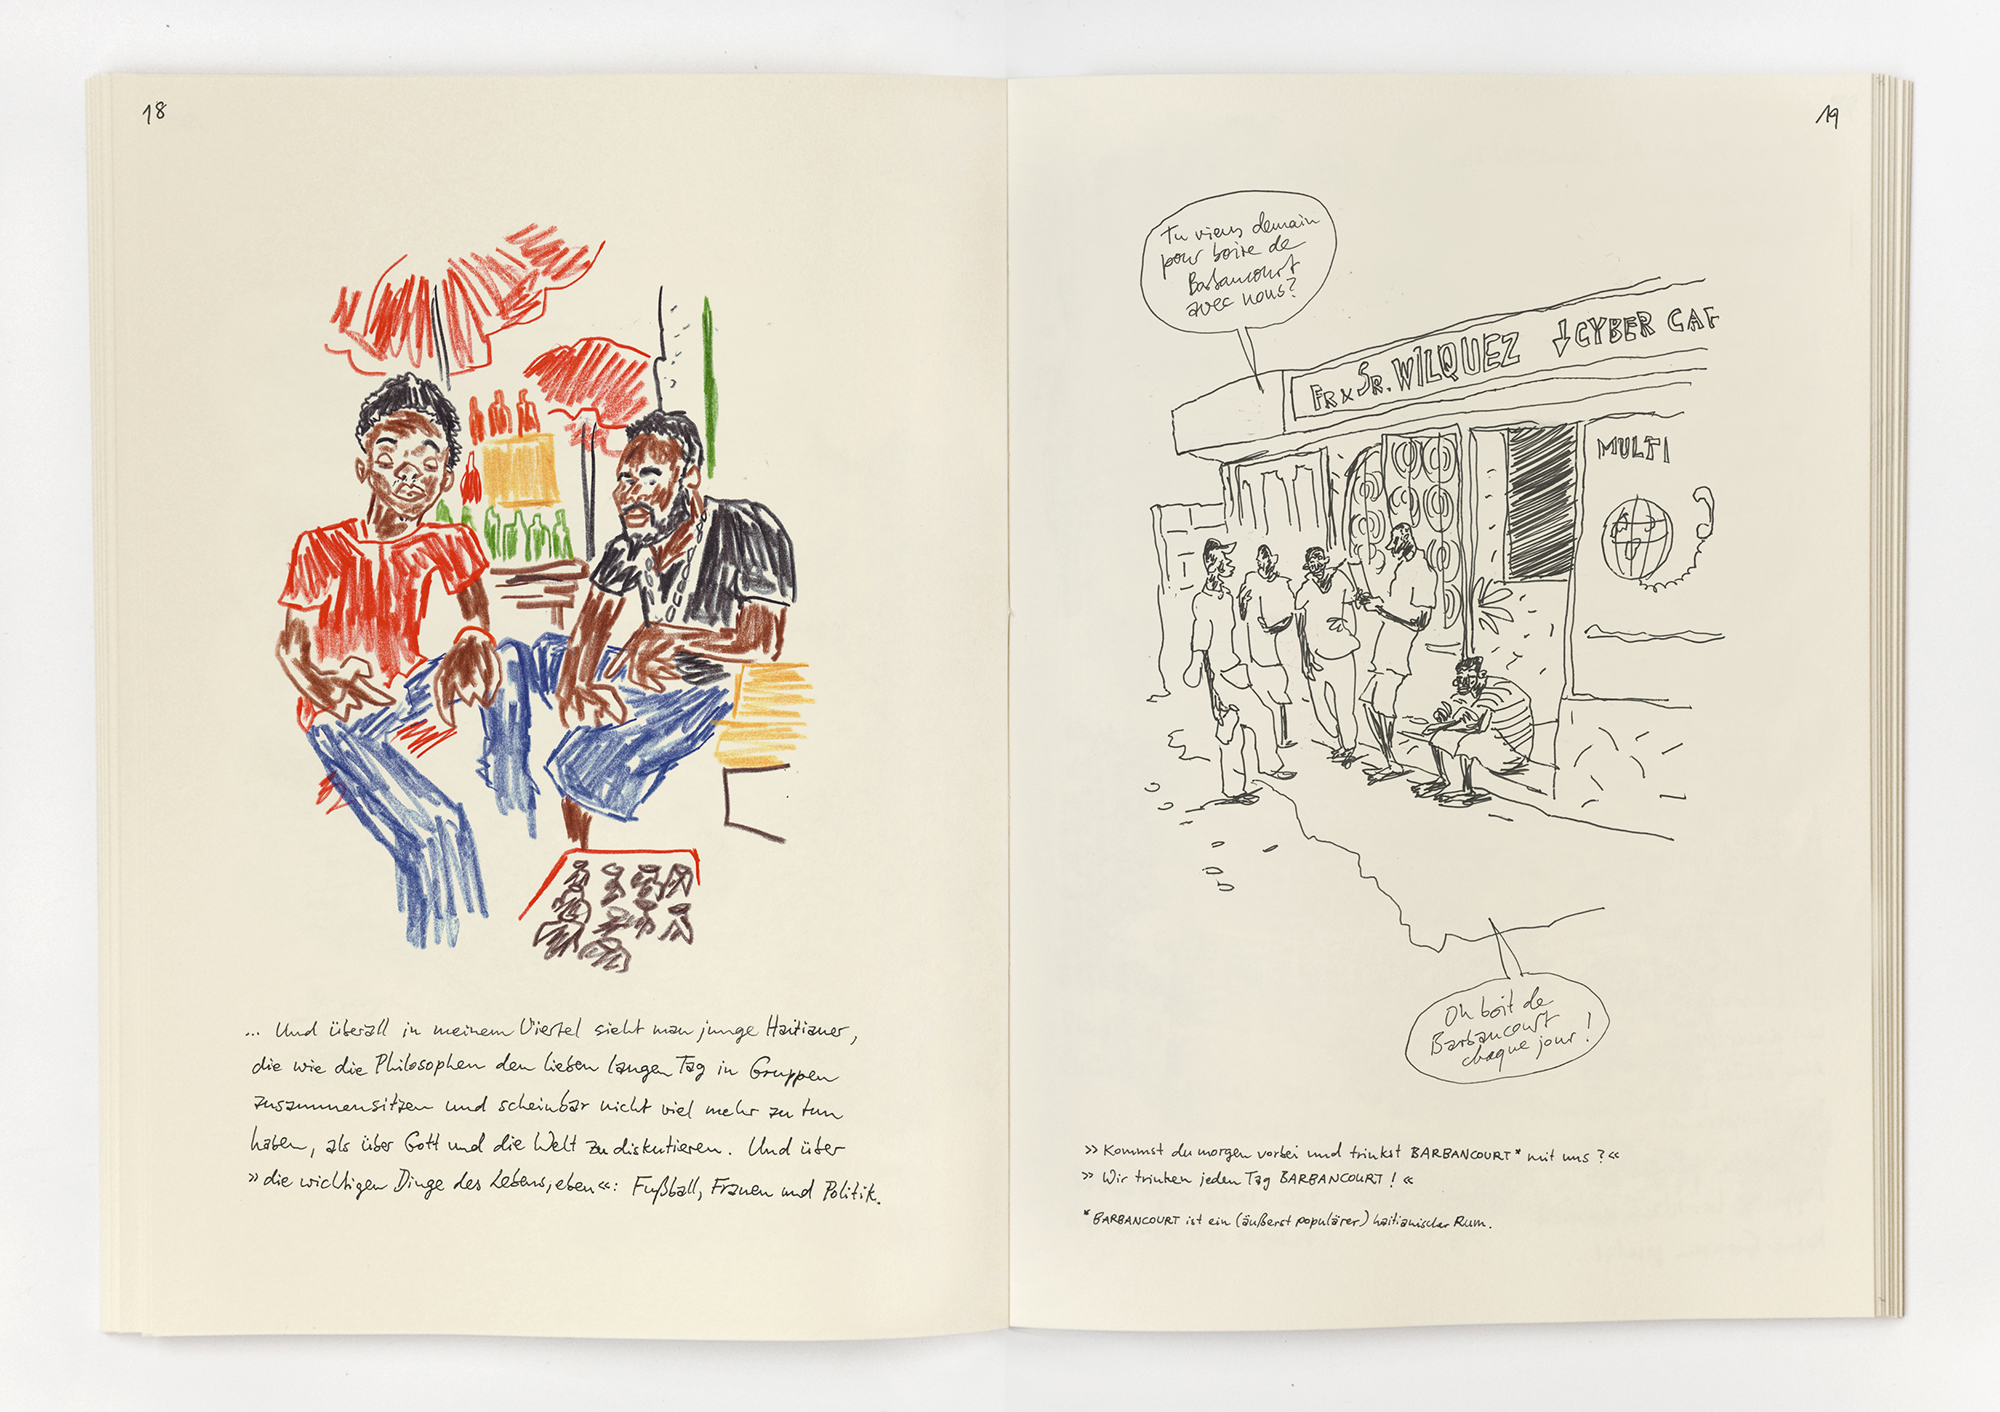 18
... Und überall in meinem Viertel sieht man junge Haitianer,
die wie die Philosophen den lieben langen Tag in Gruppen
zusammensitzen und scheinbar nicht viel mehr zu tun
haben, als über Gott und die Welt zu diskutieren. Und über
»die wichtigen Dinge des Lebens, eben«: Fußball, Frauen und Politik.
19
Tu viens demain
pour boire de
Barbancourt
avec nous?
FR x SR. WILQUEZ ↓CYBER CAF
MULTI
On boit de
Barbancourt
chaque jour!
»Kommst du morgen vorbei und trinkst BARBANCOURT* mit uns?«
»Wir trinken jeden Tag BARBANCOURT!«
*BARBANCOURT ist ein (äußerst populärer) haitianischer Rum.